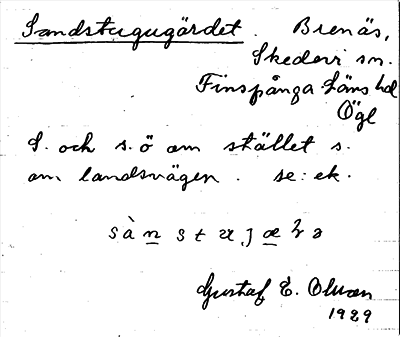 Sandstugugärdet. Brenäs,
Skedevi sn.
Finspånga läns hd
Ögl
S. och s.ö om stället s.
om landsvägen. se: ek.
Gustaf E. Olsson
1929